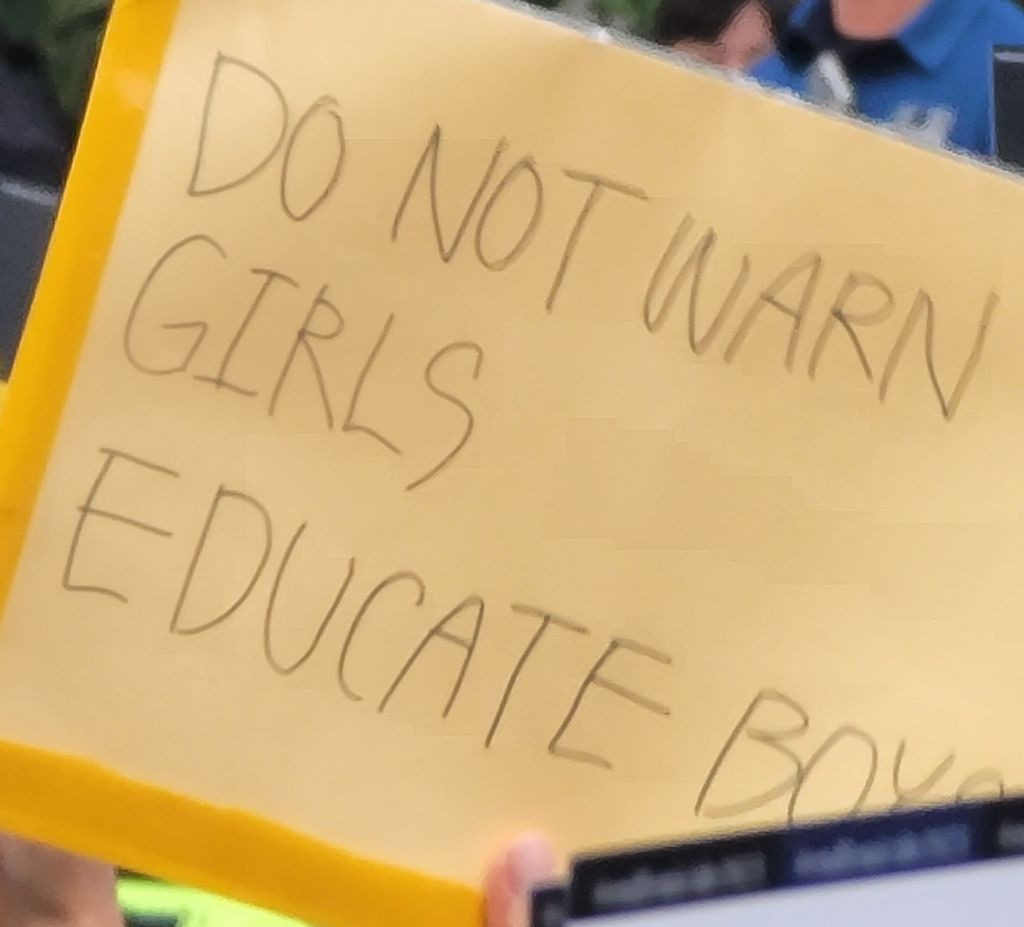 DO NOT WARN
GIRLS
EDUCATE BOYS